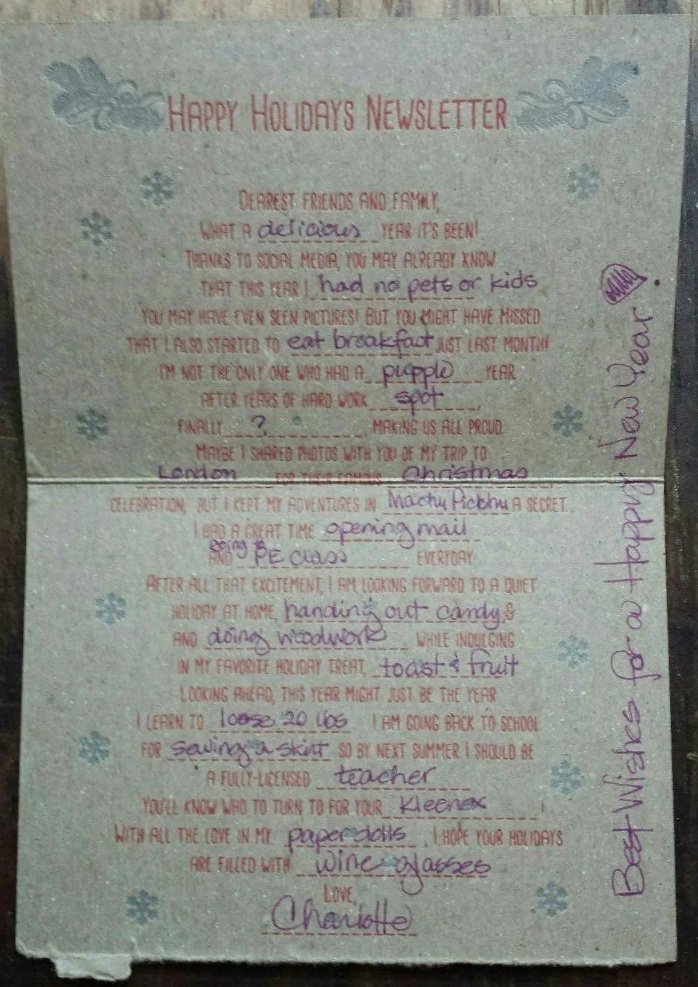 HAPPY HOLIDAYS NEWSLETTER
DEAREST FRIENDS AND FAMILY,
WHAT A delicious YEAR IT'S BEEN!
THANKS TO SOCIAL MEDIA, YOU MAY ALREADY KNOW
THAT THIS YEAR I had no pets or kids
YOU MAY HAVE EVEN SEEN PICTURES! BUT YOU MIGHT HAVE MISSED
THAT I ALSO STARTED TO eat breakfast JUST LAST MONTH!
I'M NOT THE ONLY ONE WHO HAD A purple YEAR.
AFTER YEARS OF HARD WORK spot,
FINALLY ?, MAKING US ALL PROUD.
MAYBE I SHARED PHOTOS WITH YOU OF MY TRIP TO
London FOR THEIR FAMOUS Christmas
CELEBRATION, BUT I KEPT MY ADVENTURES IN Machu Picchu A SECRET.
I HAD A GREAT TIME opening mail
AND going to PE class EVERYDAY.
AFTER ALL THAT EXCITEMENT, I AM LOOKING FORWARD TO A QUIET
HOLIDAY AT HOME, handing out candy &
AND doing woodwork WHILE INDULGING
IN MY FAVORITE HOLIDAY TREAT, toast & fruit
LOOKING AHEAD, THIS YEAR MIGHT JUST BE THE YEAR
I LEARN TO loose 20 lbs I AM GOING BACK TO SCHOOL
FOR sewing a skirt SO BY NEXT SUMMER I SHOULD BE
A FULLY-LICENSED teacher
YOU'LL KNOW WHO TO TURN TO FOR YOUR Kleenex!
WITH ALL THE LOVE IN MY paper dolls, I HOPE YOUR HOLIDAYS
ARE FILLED WITH wine glasses
LOVE,
Charlotte
Best Wishes for a Happy New Year!